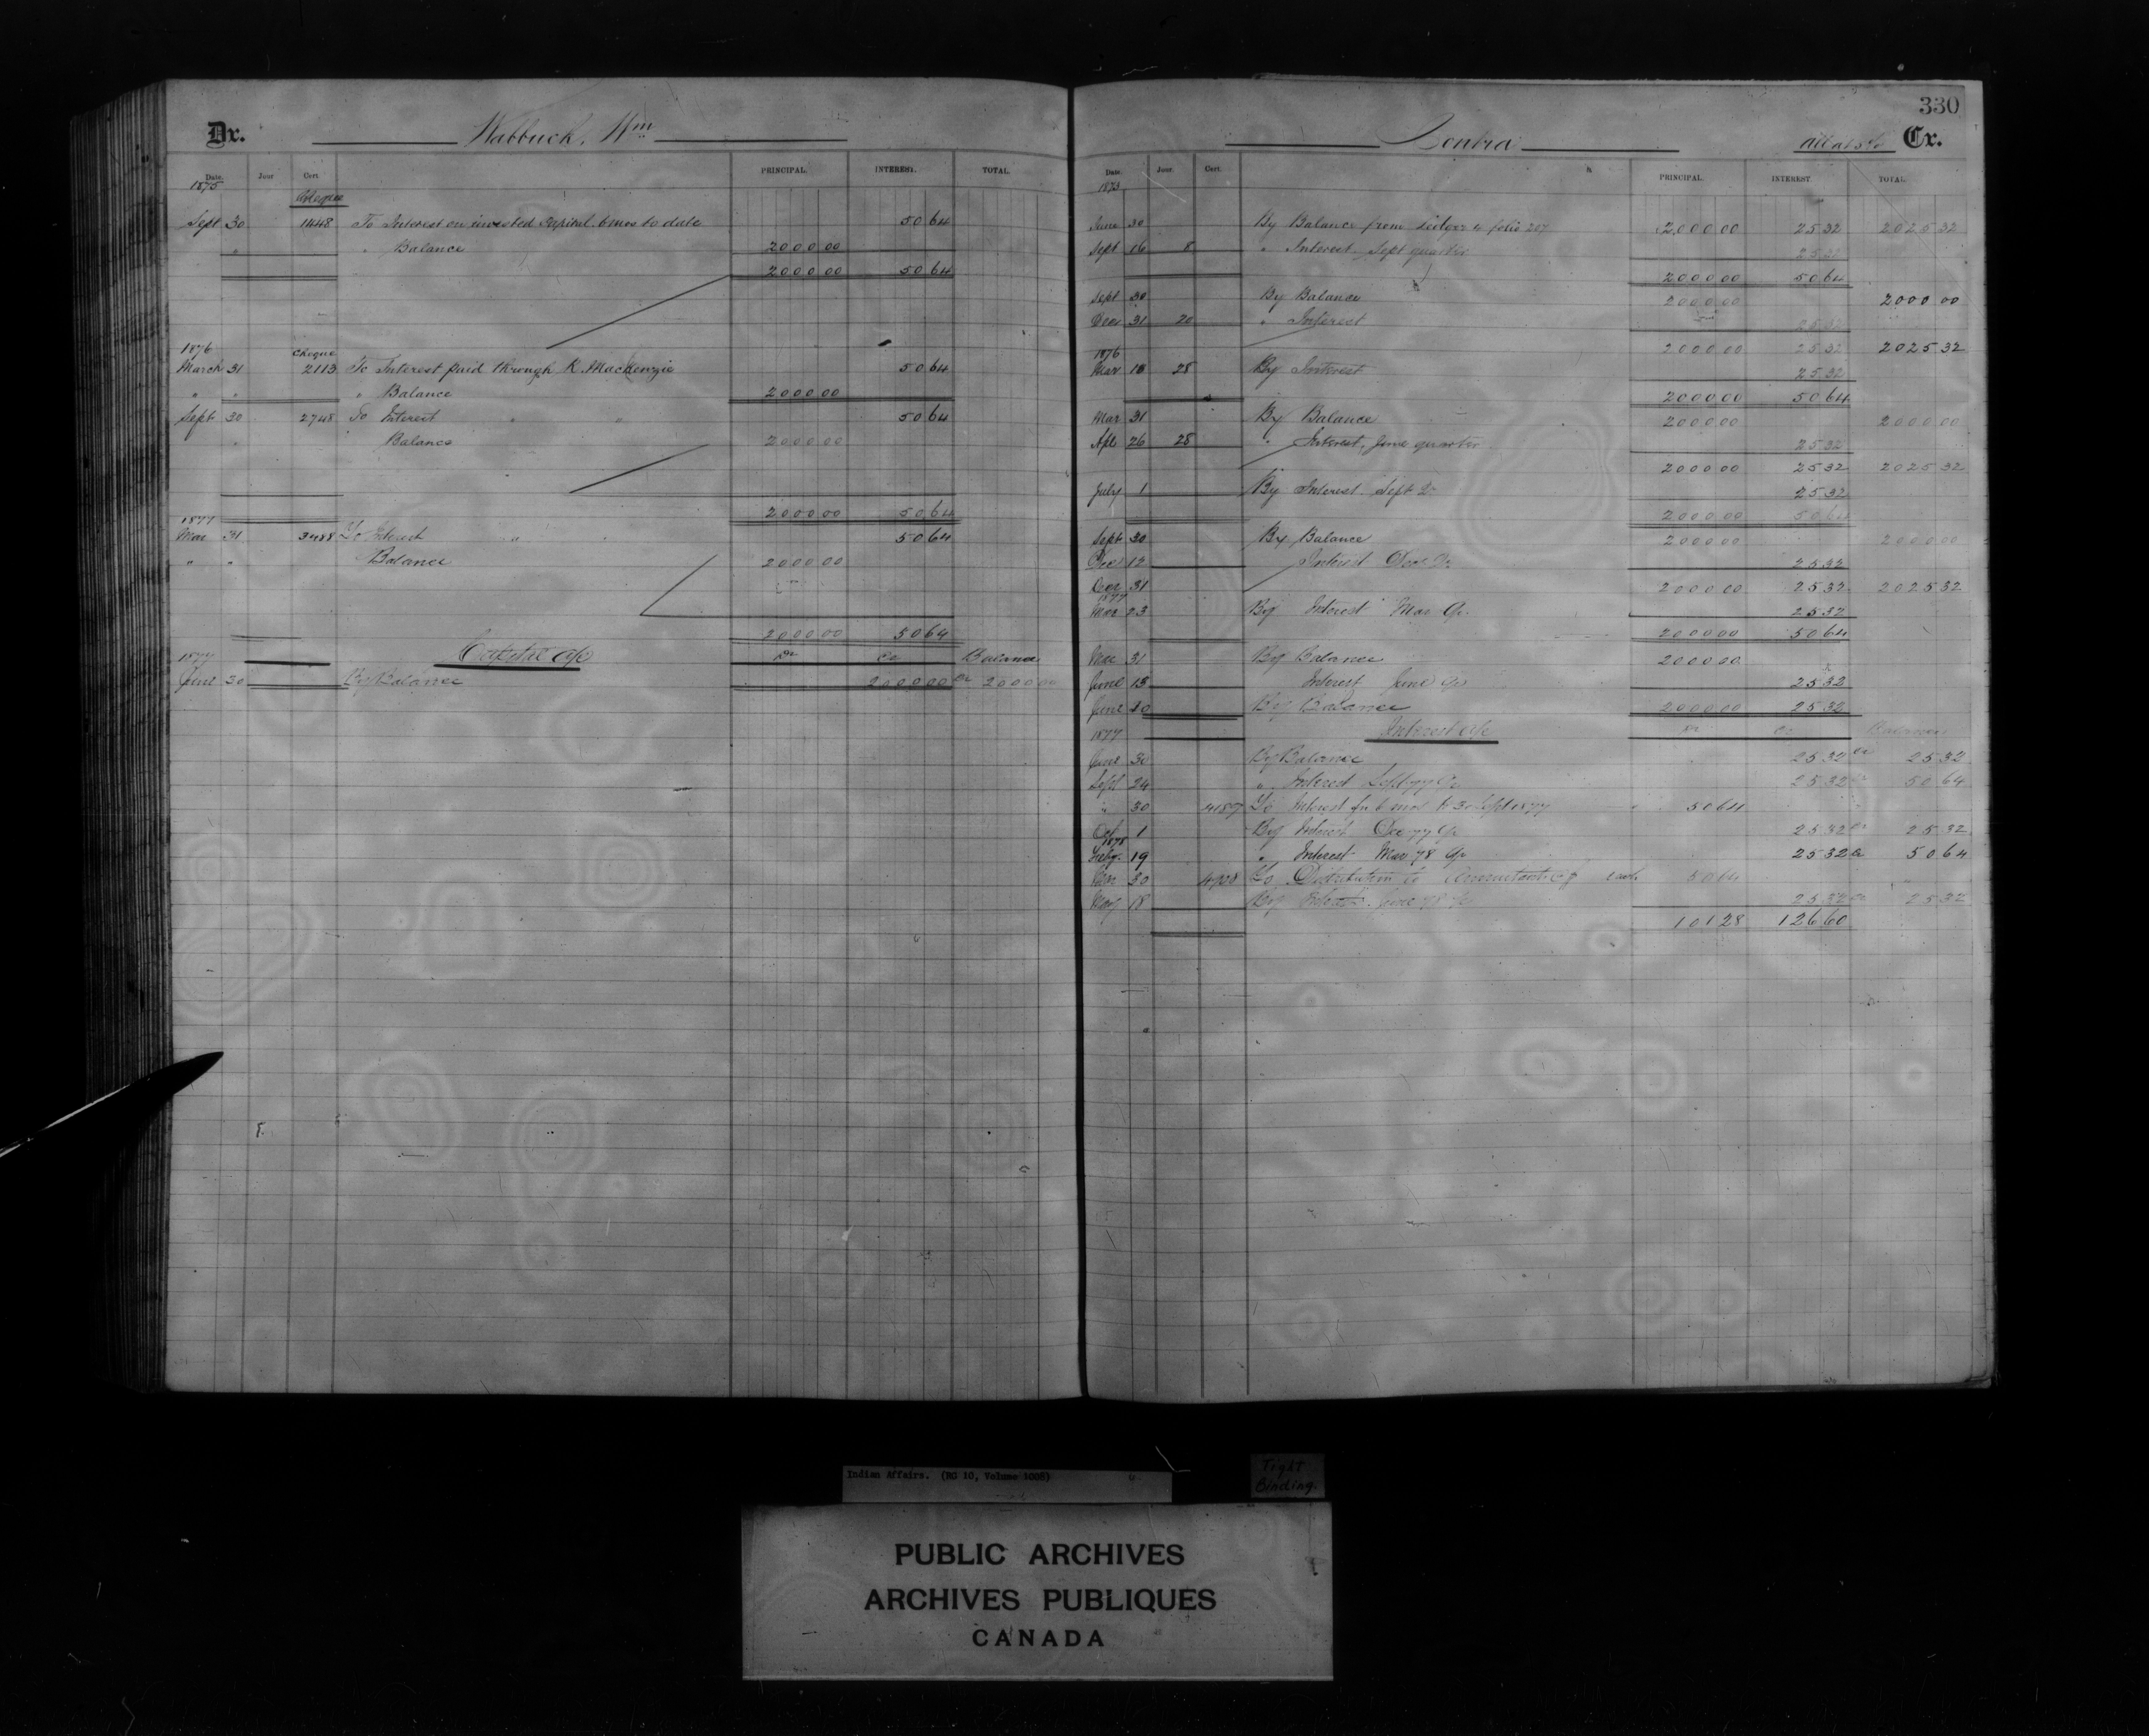 330
Dr. Wabbuck, Wm
Date. Jour Cert. PRINCIPAL. INTEREST. TOTAL.
1875
Cheque
Sept 30 1448 To Interest on invested Capital 6 mos to date 50 64
" " Balance 2000 00
2000 00 50 64
1876 Cheque
March 31 2113 To Interest paid through R. MacKenzie 50 64
" " " Balance 2000 00
Sept 30 2748 To Interest " " 50 64
" Balance 2000 00
2000 00 50 64
1877
Mar 31 3488 To Interest " " 50 64
" " Balance 2000 00
2000 00 50 64
1877 Capital a/c Dr Cr Balance
June 30 By Balance 2000 00 Cr 2000 00
Contra Cr.
Date. Jour. Cert. PRINCIPAL. INTEREST TOTAL.
June 30 By Balance from Ledger 4 folio 207 2000 00 25 32 2025 32
Sept 16 8 " Interest Sept quarter 25 32
2000 00 50 64
Sept 30 By Balance 2000 00 2000 00
Dec 31 20 " Interest 25 32
2000 00 25 32 2025 32
1876
Mar 18 28 By Interest 25 32
2000 00 50 64
Mar 31 By Balance 2000 00 2000 00
Apl 26 28 " Interest, June quarter 25 32
2000 00 25 32 2025 32
July 1 By Interest Sept Qr 25 32
2000 00 50 64
Sept 30 By Balance 2000 00 2000 00
Dec 12 Interest Dec Qr 25 32
Dec 31 2000 00 25 32 2025 32
1877
Mar 23 By Interest Mar Qr 25 32
2000 00 50 64
Mar 31 By Balance 2000 00
June 15 Interest June Qr 25 32
June 30 By Balance 2000 00 25 32
1877 Interest a/c Dr Cr Balance
June 30 By Balance 25 32 Cr 25 32
Sept 24 " Interest Sept 77 Qr 25 32 Cr 50 64
" 30 4187 To Interest for 6 mos to 30 Sept 1877 50 64
Oct 1 By Interest Dec 77 Qr 25 32 Cr 25 32
1878
Feby. 19 " Interest Mar 78 Qr 25 32 Cr 50 64
Mar 30 To Distribution to 50 64
May 18 By Interest June 78 Qr 25 32 Cr 25 32
101 28 126 60
Indian Affairs. (RG 10, Volume 1008)
Tight
Binding.
PUBLIC ARCHIVES
ARCHIVES PUBLIQUES
CANADA